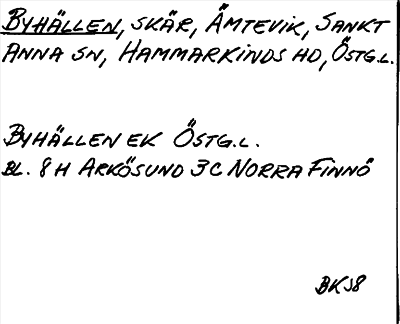 BYHÄLLEN, SKÄR, ÄMTEVIK, SANKT
ANNA SN, HAMMARKINDS HD, ÖSTG.L.
BYHÄLLEN EK ÖSTG.L.
BL. 8H ARKÖSUND 3C NORRA FINNÖ
BKJ8